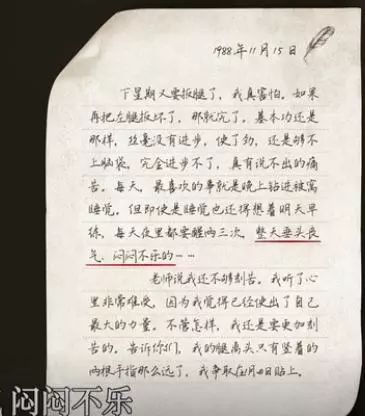 1988年11月15日
下星期又要扳腿了,我真害怕。如果
再把左腿扳坏了,那就完了。基本功还是
那样,丝毫没有进步,使了劲,还是够不
上脑袋,完全进步不了,真有说不出的痛
苦。每天,最喜欢的事就是晚上钻进被窝
睡觉。但即使是睡觉也还得想着明天早
练,每天夜里都要醒两三次,整天垂头丧
气、闷闷不乐的……
老师说我还不够刻苦。我听了心
里非常难受,因为我觉得已经使出了自己
最大的力量。不管怎样,我还是要更加刻
苦的。告诉你们,我的腿离头只有竖着的
两根手指那么远了,我争取在月日贴上。
闷闷不乐